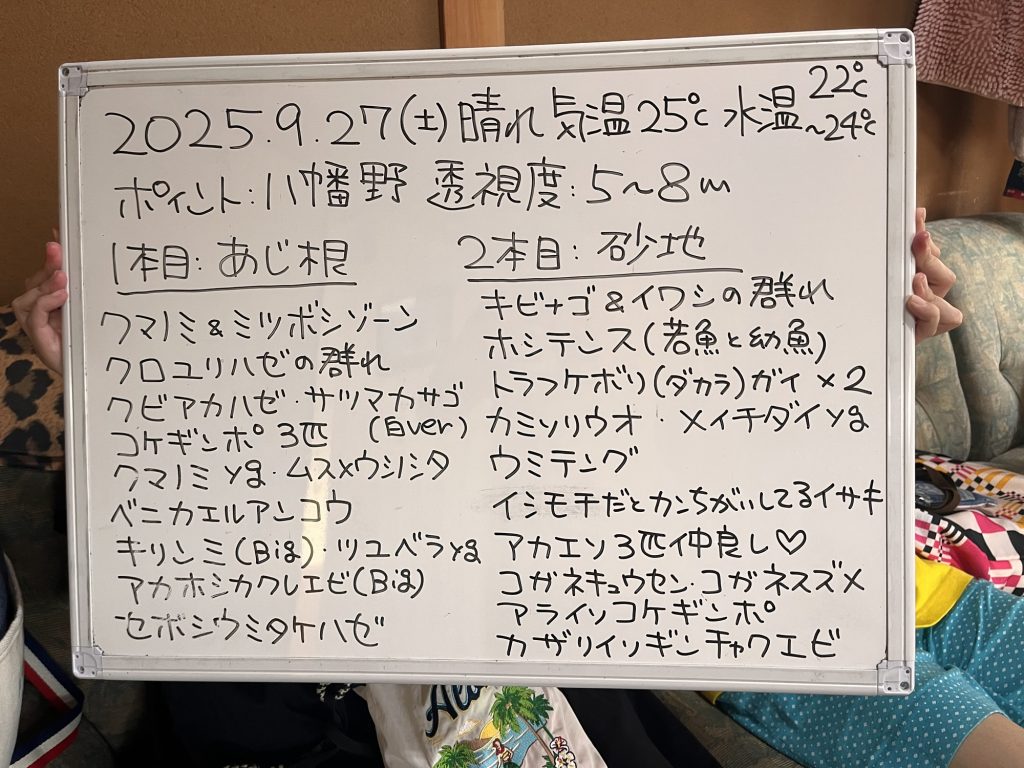 2025.9.27(土)晴れ 気温25℃ 水温22℃~24℃
ポイント:八幡野 透視度:5~8m
1本目:あじ根
クマノミ&ミツボシゾーン
クロユリハゼの群れ
クビアカハゼ・サツマカサゴ
コケギンポ3匹 (白ver)
クマノミyg・ムスメウシノシタ
ベニカエルアンコウ
キリンミ(Big)・ツユベラyg
アカホシカクレエビ(Big)
セボシウミタケハゼ
2本目:砂地
キビナゴ&イワシの群れ
ホシテンス(若魚と幼魚)
トラフケボリ(ダカラ)ガイ×2
カミソリウオ・メイチダイyg
ウミテング
イシモチだとカンちがいしてるイサキ
アカエソ3匹仲良し♡
コガネキュウセン・コガネスズメ
アライソコケギンポ
カザリイソギンチャクエビ